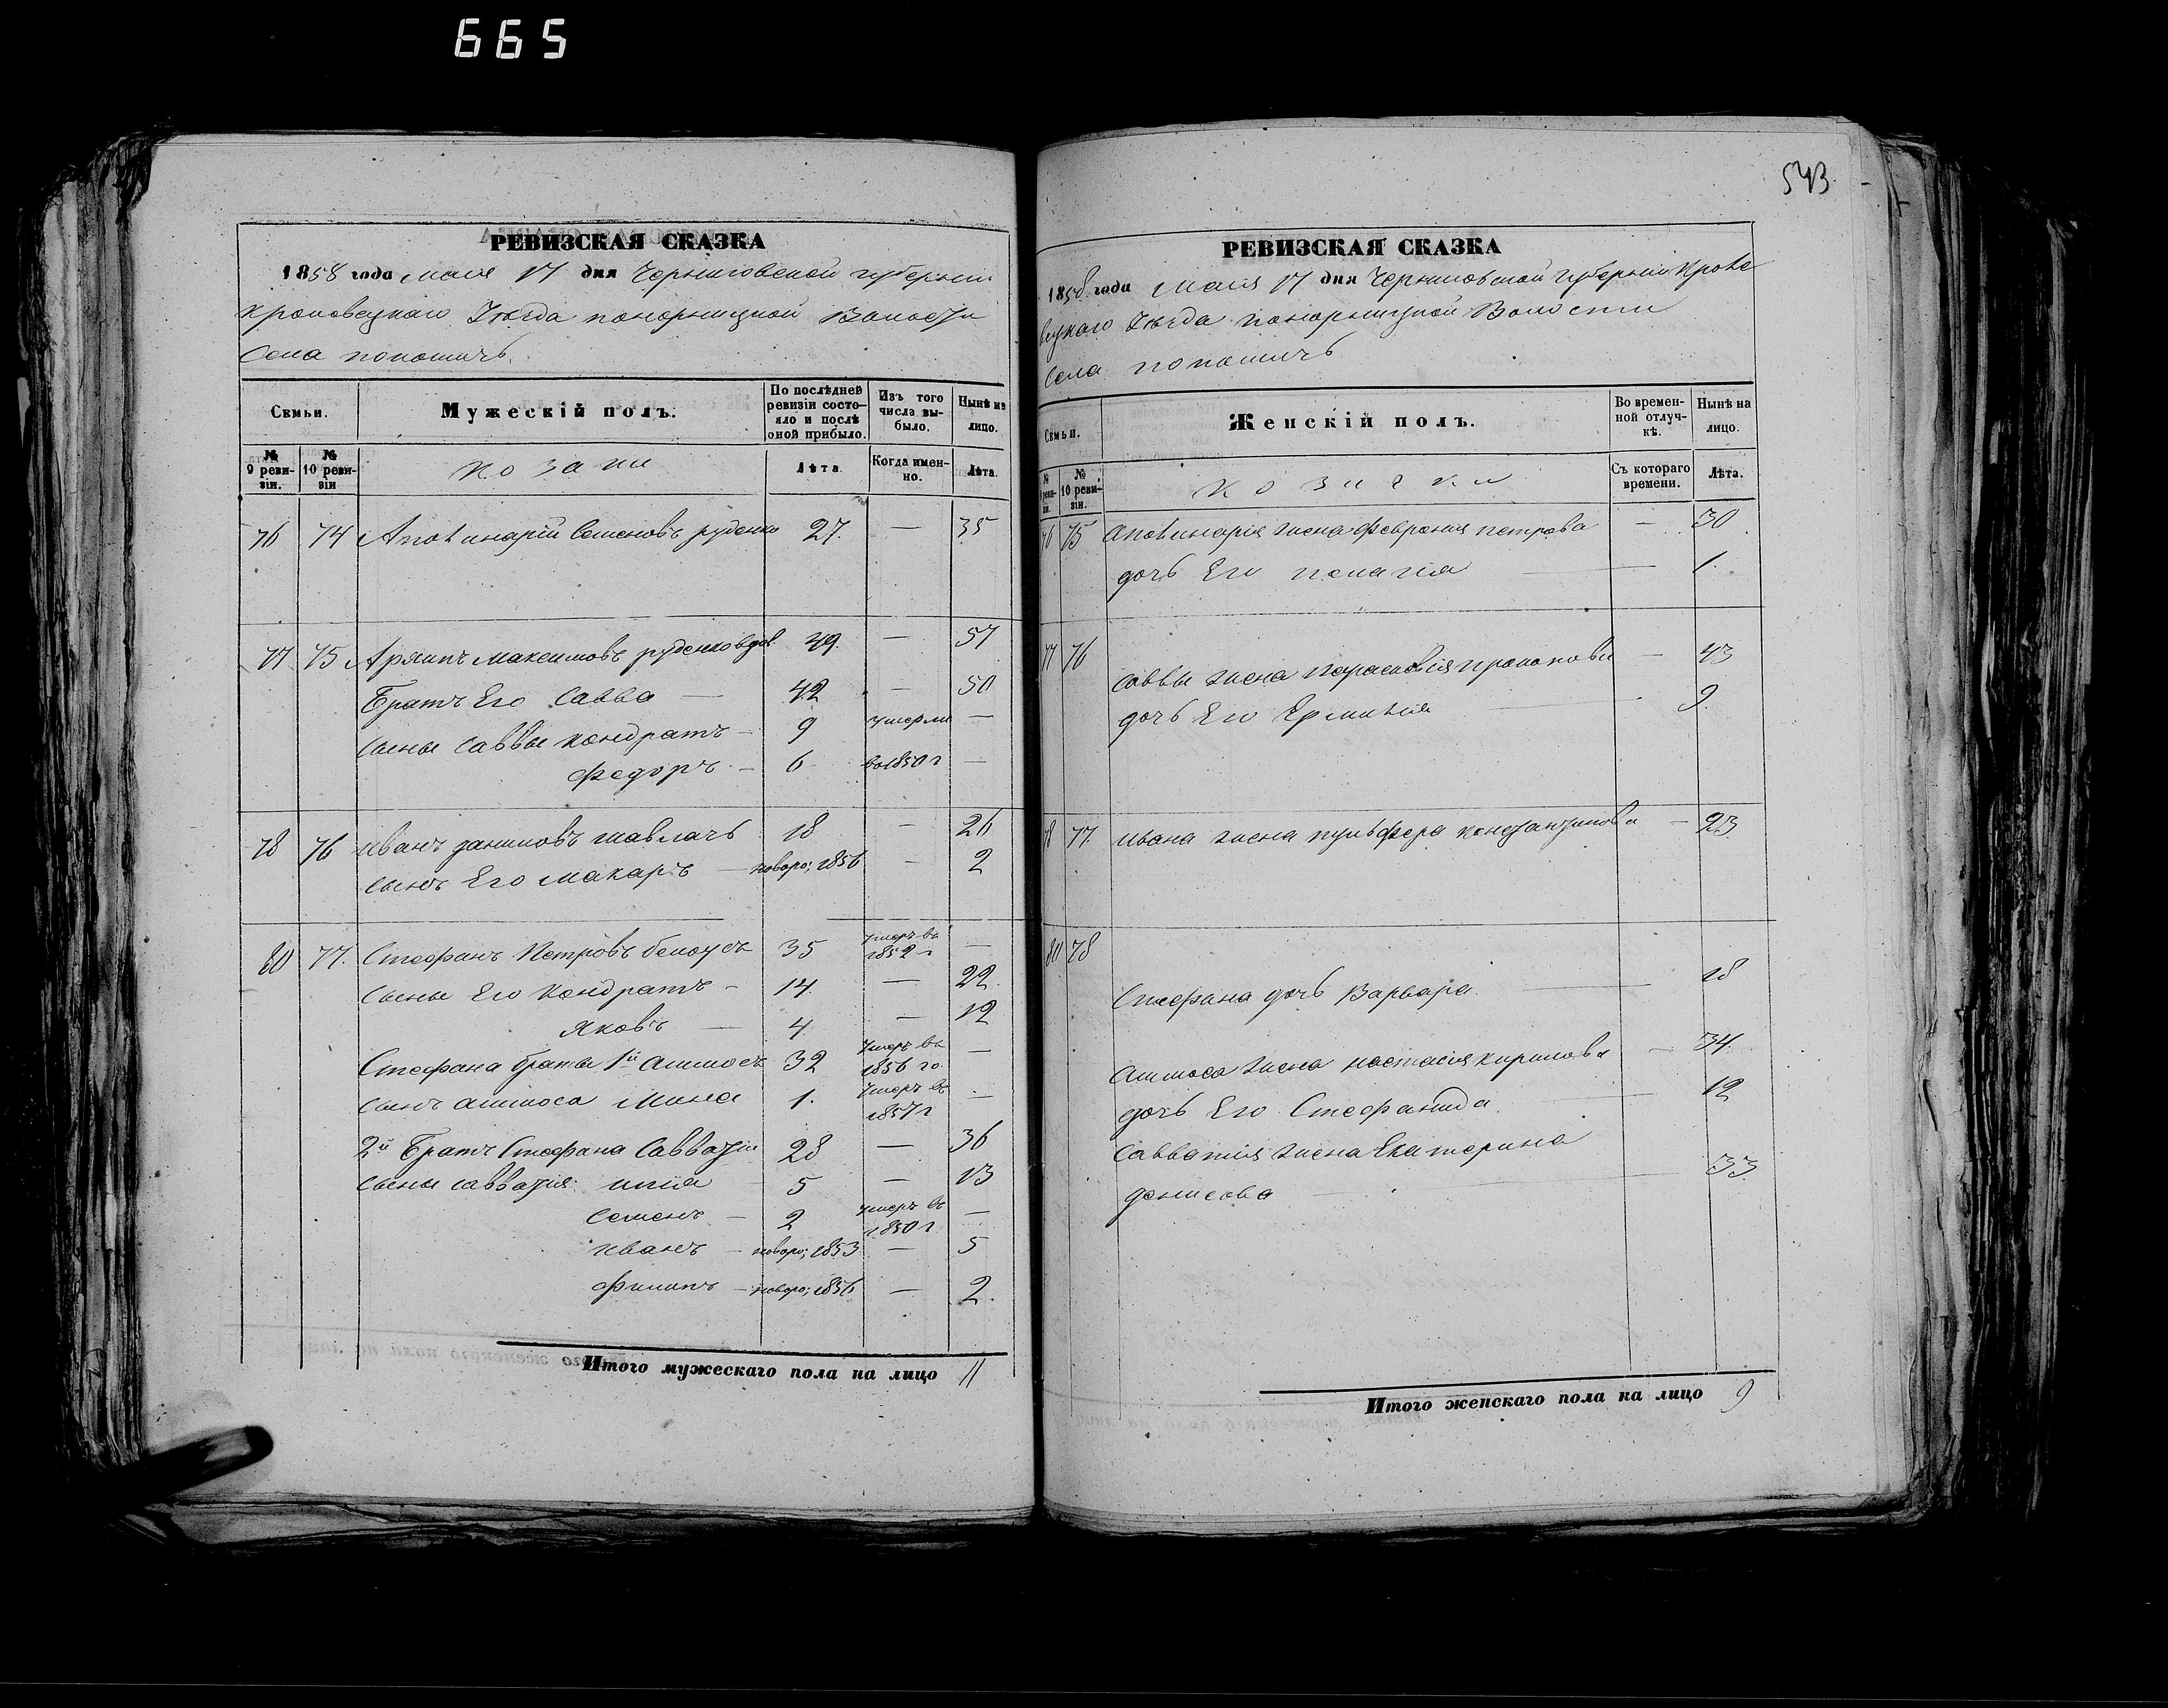 665
543
РЕВИЗСКАЯ СКАЗКА
1858 года Маія 17 дня Черниговской губерніи
Кролевецкаго Уѣзда понорницкой Волости
Села попошичь
Семьи.
Мужескій полъ.
По послѣдней ревизіи состояло и послѣ оной прибыло.
Изъ того числа выбыло.
Нынѣ на лицо.
№ 9 ревизіи.
№ 10 ревизіи
козаки
Лѣта.
Когда именно.
Лѣта.
76 74 Аполинарій Семеновъ руденко 27. — 35
77 75 Архипъ Максимовъ руденко вдов 49. — 57
Братъ Его Савва — 42 — 50
Сыны Саввы Кондратъ — 9 умерли —
Федоръ — 6 во 1850 г —
78 76 Иванъ шавлачь 18 — 26
Сынъ Его Макаръ — новоро; 1856 — 2
80 77. Стефанъ Петровъ белоусъ 35 умеръ въ 1852 г —
Сыны Его Кондратъ — 14. — 22.
Яковъ — 4. — 12
Стефана братья 1й Аммосъ 32 умеръ въ 1856 го —
Сынъ аммоса Мина 1. умеръ въ 1857 г —
2й Братъ Стефана Савватій 28 — 36
Сыны савватія илія 5 — 13
Семенъ — 2 умеръ въ 1850 г —
Иванъ — новоро; 1853 — 5
Филипъ — новоро; 1856 — 2.
Итого мужескаго пола на лицо 11
РЕВИЗСКАЯ СКАЗКА
1858 года Маія 17 дня Черниговской губерніи Кроле
вецкаго Уѣзда понорницкой Волости
Села попошичь
Семьи.
Женскій полъ.
Во временной отлучкѣ.
Нынѣ на лицо.
№ 10 ревизіи.
козачки
Съ котораго времени.
Лѣта.
76 75 Аполинарія жена Феврония петрова — 30
дочь Его пелагія — 1.
77 76 Саввы жена Парасковія прокопова — 43
дочь Его — 9.
78 77. Ивана жена пульфера константинова — 23
80 78 Стефана дочь Варвара. — 18
Аммоса жена настасія кирилова — 34
дочь Его Стефанида — 12
Савватія жена Екатерина
денисова — 33.
Итого женскаго пола на лицо 9